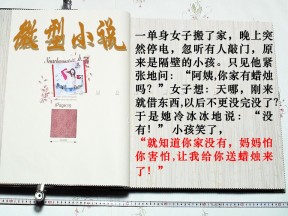 微型小说
一单身女子搬了家，晚上
突然停电，忽听有人敲门，原
来是隔壁的小孩。只见他紧
张地问：“阿姨,你家有蜡烛
吗？” 女子想：天哪，刚来
就借东西,以后不更没完没了？
于是她冷冰冰地说：“没
有！” 小孩笑了，
“就知道你家没有，妈妈怕
你害怕,让我给你送蜡烛来
了！”